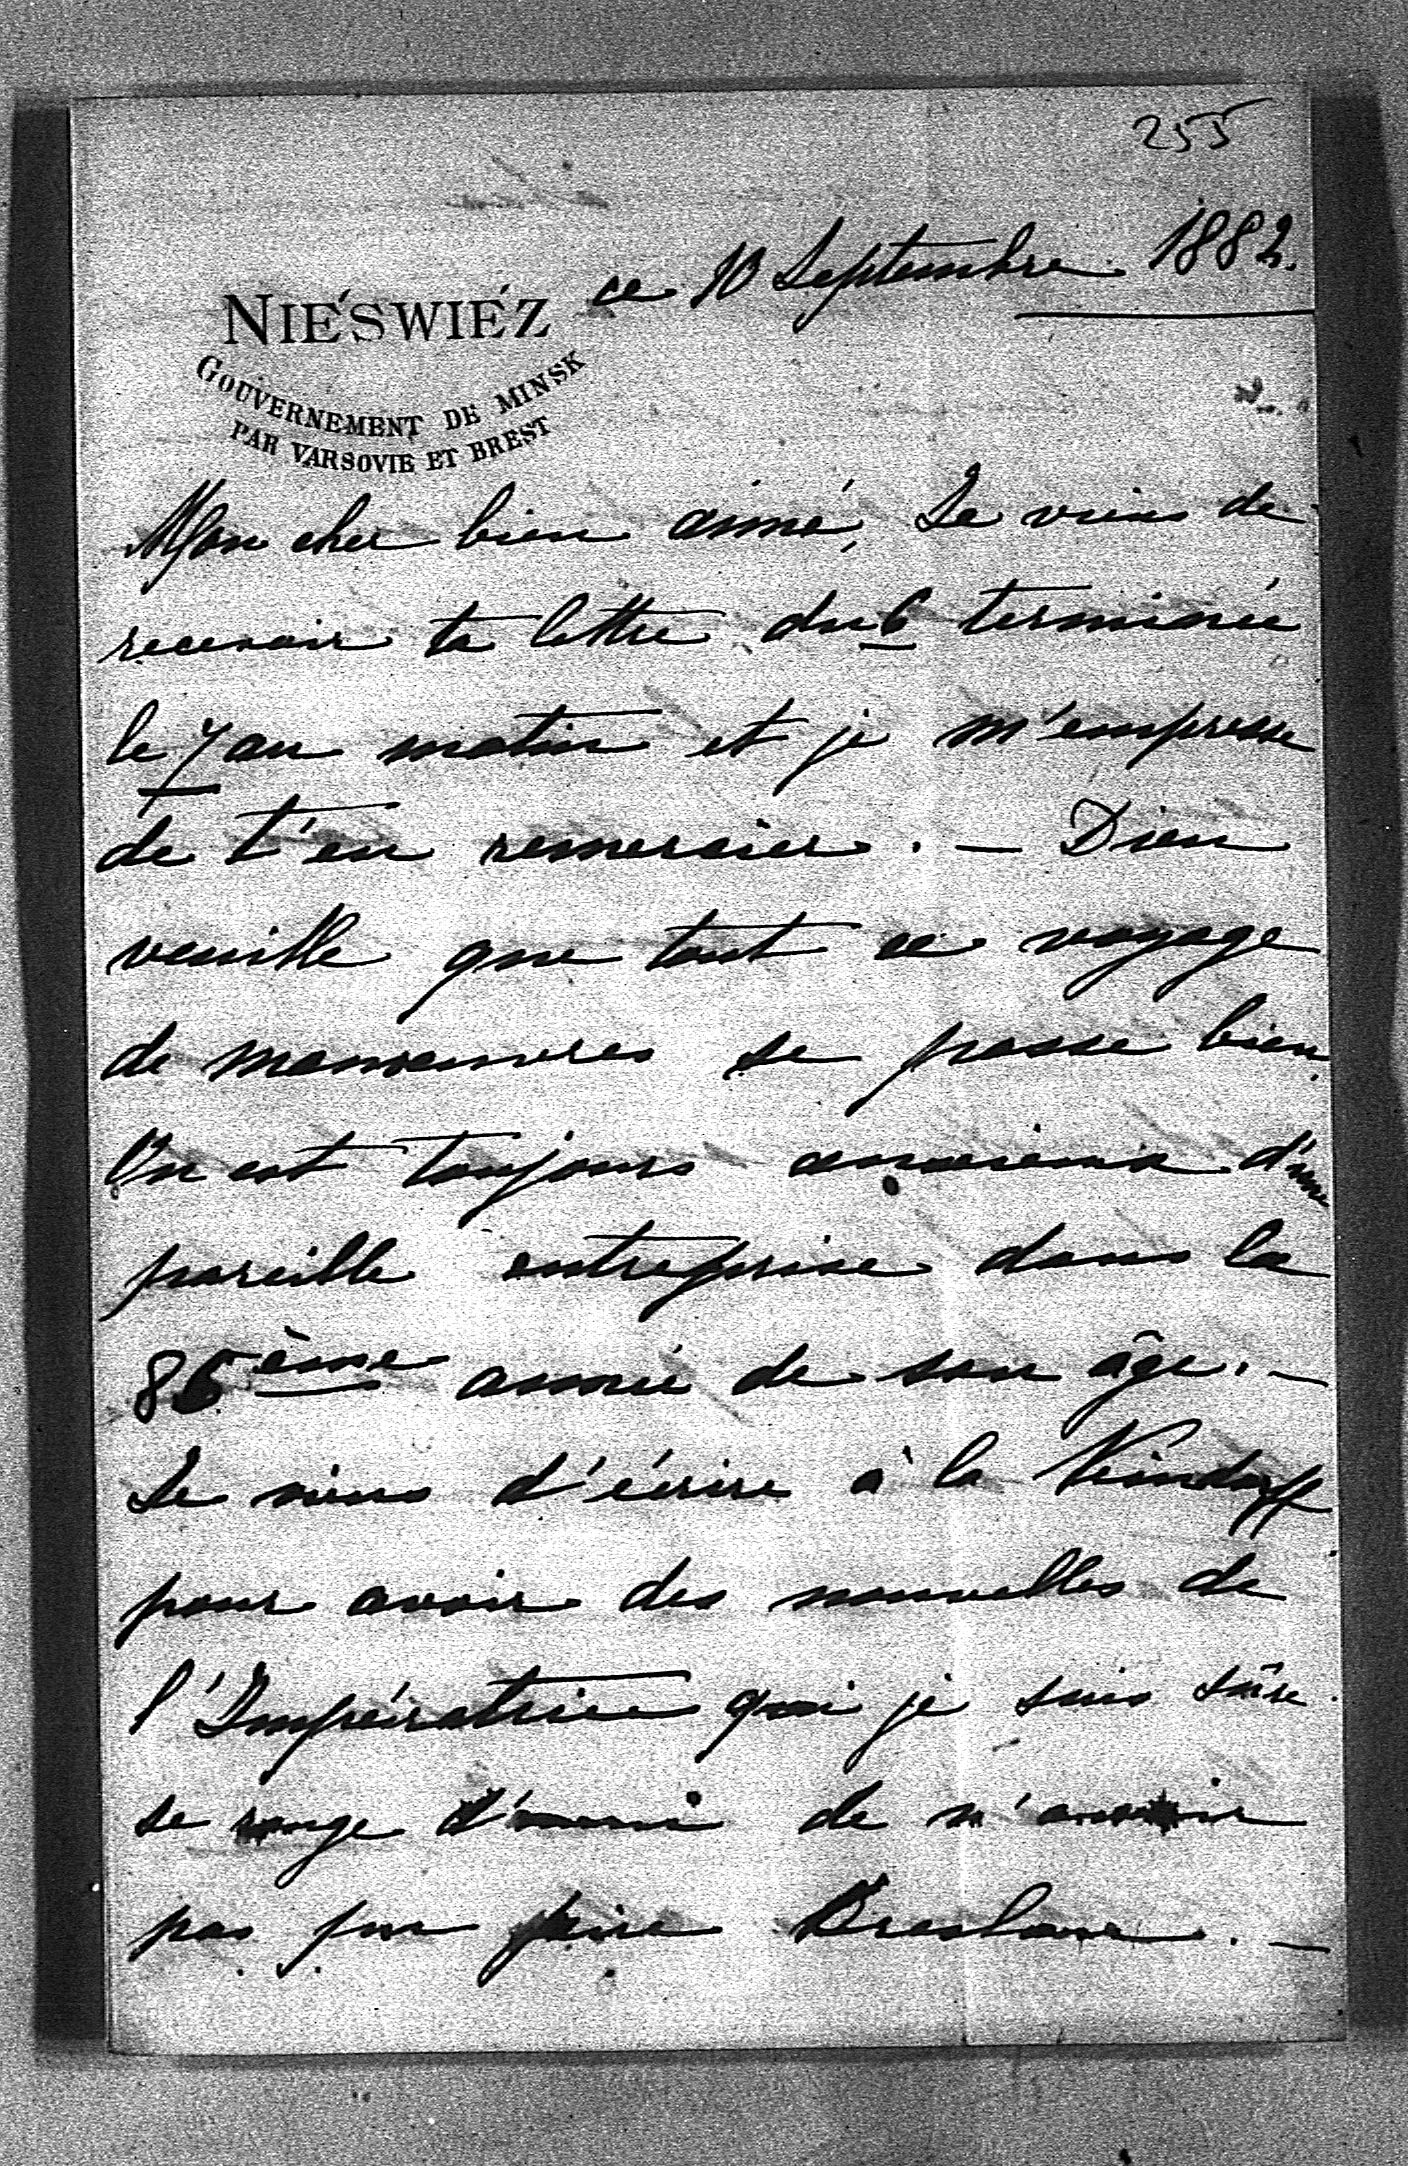 255
ce 10 Septembre 1882.
NIÉSWIÉZ
GOUVERNEMENT DE MINSK
PAR VARSOVIE ET BREST
Mon cher bien aimé, Je viens de
recevoir ta lettre du 6 terminée
le 7 au matin et je m'empresse
de t'en remercier. — Dieu
veuille que tout ce voyage
de manoeuvres se passe bien.
On est toujours anxieux d'une
pareille entreprise dans la
86ème année de son âge. —
Je viens d'écrire à la
pour avoir des nouvelles de
l'Impératrice qui je suis sûre
se ronge d'ennui de n'avoir
pas pu faire Breslau. —